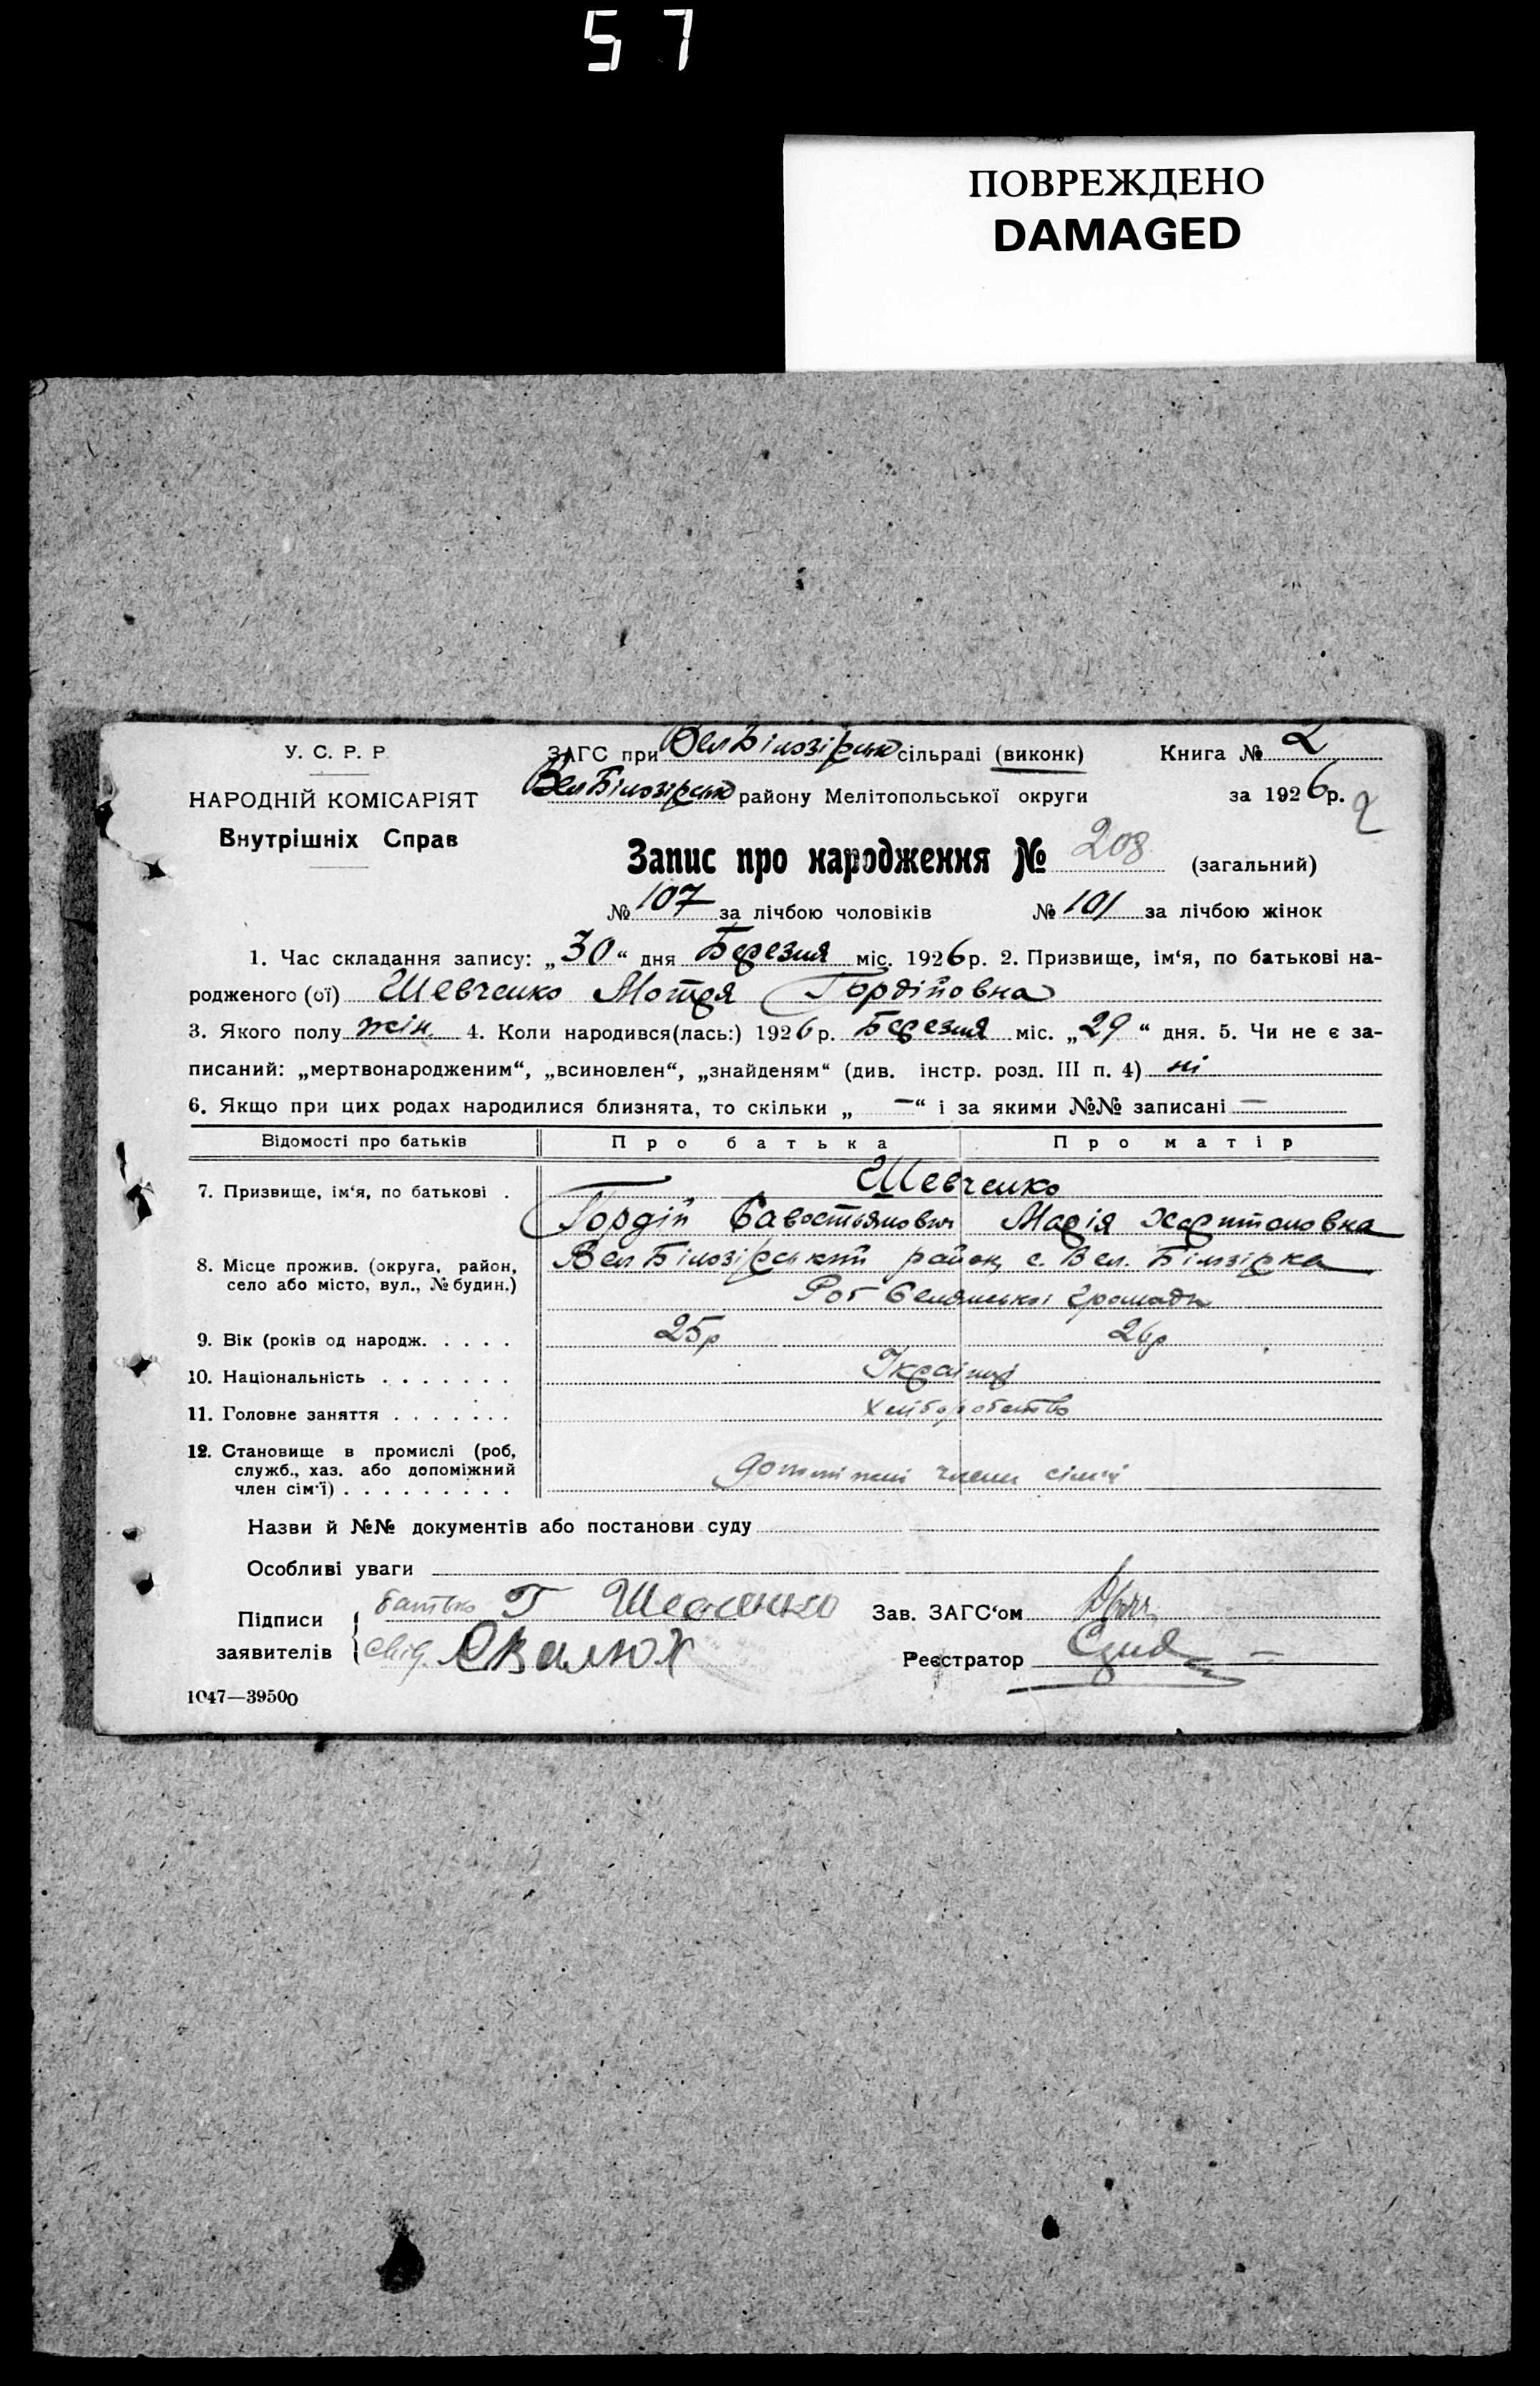 57
ПОВРЕЖДЕНО
DAMAGED
У. С. Р. Р.
НАРОДНІЙ КОМІСАРІЯТ
Внутрішніх Справ
ЗАГС при ВелБілозірськ сільраді (виконк) Книга № 2
ВелБілозірськ району Мелітопольської округи за 1926р. 2
Запис про народження № 208 (загальний)
№ 107 за лічбою чоловіків № 101 за лічбою жінок
1. Час складання запису: „30“ дня Березня міс. 1926р. 2. Призвище, ім‘я, по батькові на-
родженого (ої) Шевченко Мотря Гордіповна
3. Якого полу жін. 4. Коли народився(лась:) 1926р. Березня міс. „29“ дня. 5. Чи не є за-
писаний: „мертвонародженим“, „всиновлен“, „знайденям“ (див. інстр. розд. III п. 4) ні
6. Якщо при цих родах народилися близнята, то скільки „ —“ і за якими №№ записані —
Відомості про батьків Про батька Про матір
7. Призвище, ім‘я, по батькові . Шевченко
Гордій Савостьянович Марія Харитоновна
8. Місце прожив. (округа, район, село або місто, вул., № будин.) Вел Білозірський район, с. Вел. Білозірка
Селянської громади
9. Вік (років од народж. . . . . 25р 26р
10. Національність . . . . . . . Українці
11. Головне заняття . . . . . . . Хліборобство
12. Становище в промислі (роб, служб., хаз. або допоміжний член сім‘ї) . . . . . . . . . допоміжні члени сімї
Назви й №№ документів або постанови суду
Особливі уваги
Підписи заявителів { батько Г Шевченко Зав. ЗАГС‘ом
свід. Реєстратор
1047—39500